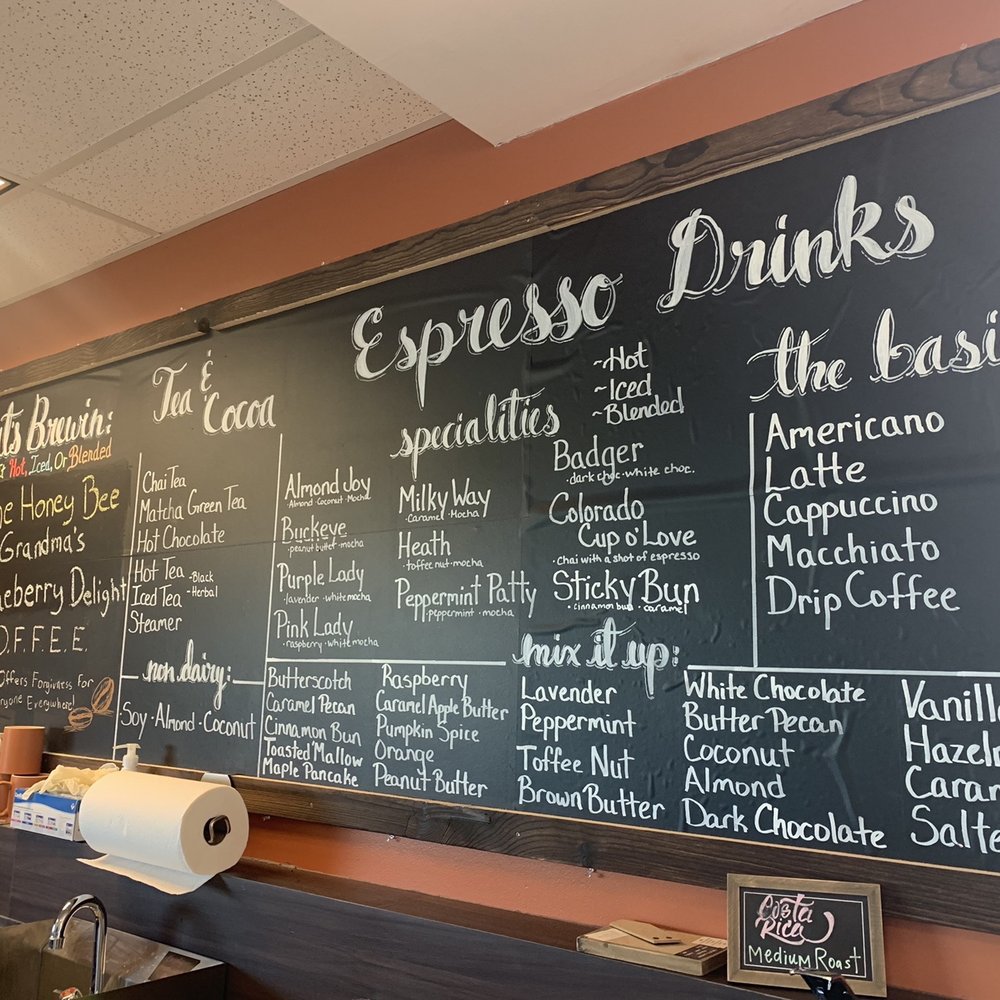 Brewin:
Hot, Iced, Or Blended
Honey Bee
Grandma's
Delight
O.F.F.E.E.
Offers Forgiveness For
Everywhere!
Tea & Cocoa
Chai Tea
Matcha Green Tea
Hot Chocolate
Hot Tea
Iced Tea
-Black
-Herbal
Steamer
non dairy:
Soy · Almond · Coconut
Espresso Drinks
~Hot
~Iced
~Blended
specialities
Almond Joy
Almond · Coconut · Mocha
Buckeye
· peanut butter · mocha
Purple Lady
· lavender · white mocha
Pink Lady
· raspberry · white mocha
Milky Way
· Caramel · Mocha
Heath
· toffee nut · mocha
Peppermint Patty
· peppermint · mocha
Badger
· dark choc · white choc.
Colorado
Cup o' Love
· chai with a shot of espresso
Sticky Bun
· caramel
the basi
Americano
Latte
Cappuccino
Macchiato
Drip Coffee
mix it up:
Butterscotch
Caramel Pecan
Cinnamon Bun
Toasted 'Mallow
Maple Pancake
Raspberry
Caramel Apple Butter
Pumpkin Spice
Orange
Peanut Butter
Lavender
Peppermint
Toffee Nut
Brown Butter
White Chocolate
Butter Pecan
Coconut
Almond
Dark Chocolate
Vanill
Hazeln
Caram
Salte
Costa
Rica
Medium Roast